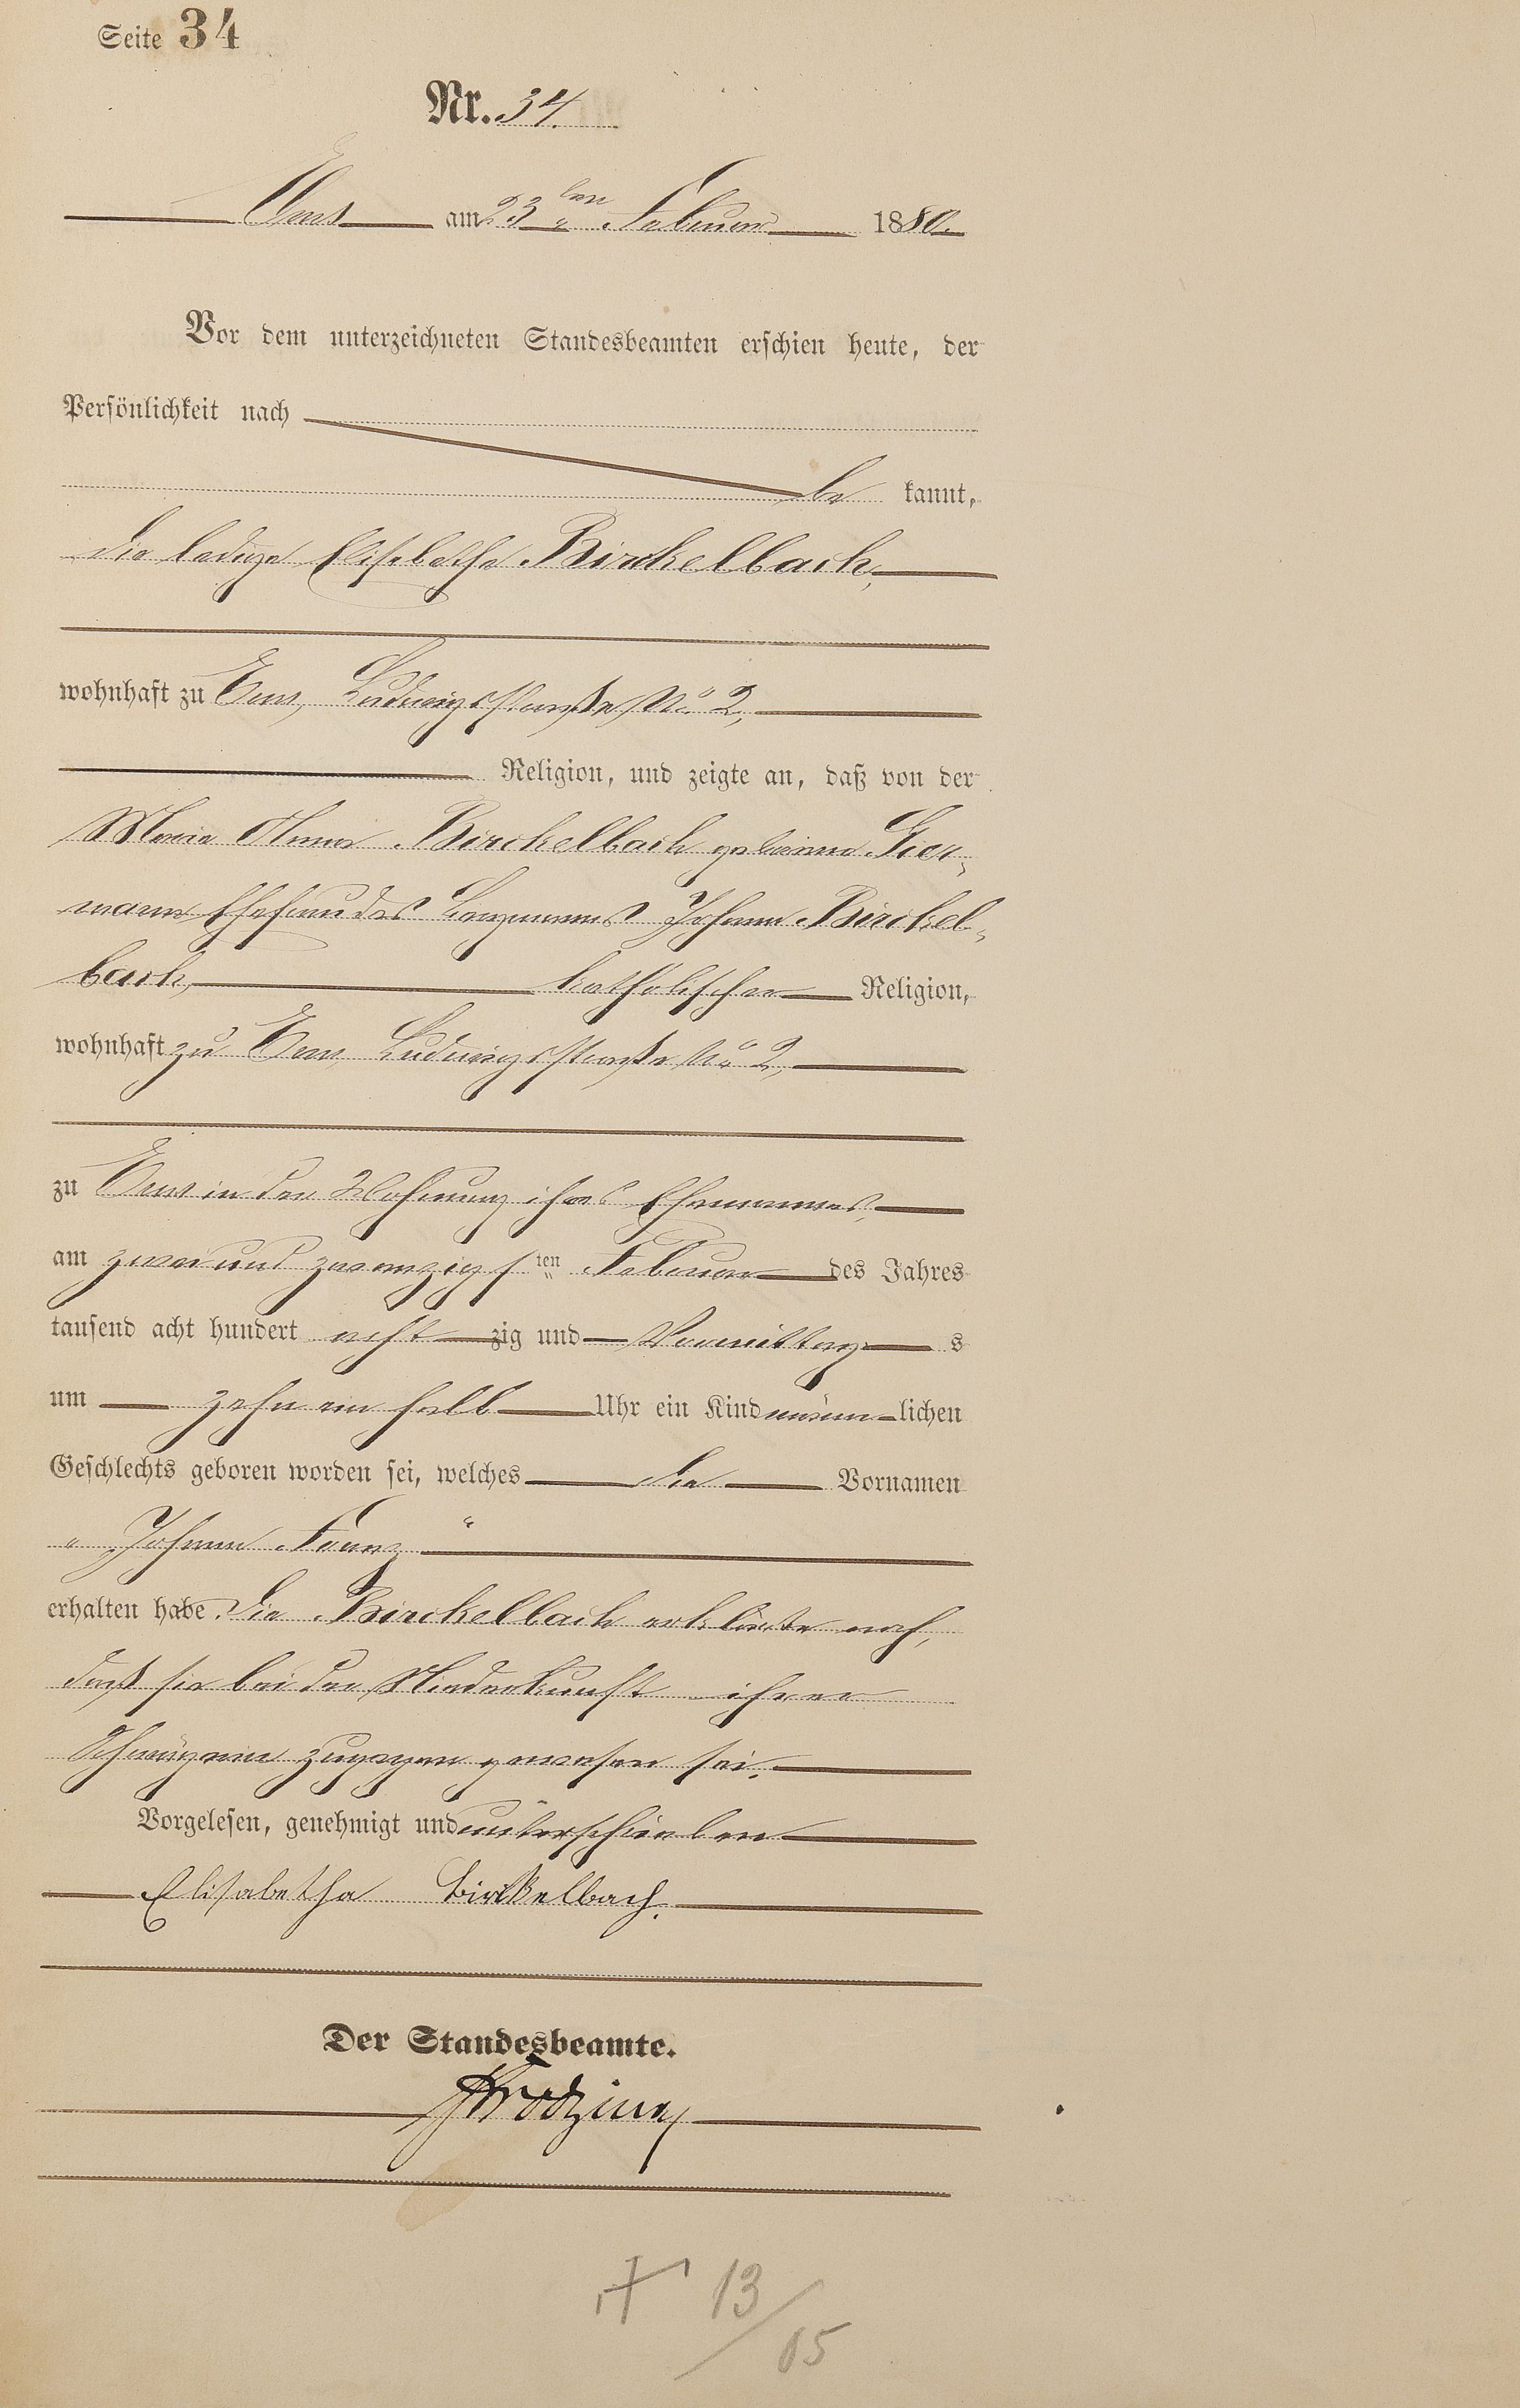 Seite 34
Nr. 34.
Ems am 23ten Februar 1880.
Vor dem unterzeichneten Standesbeamten erschien heute, der
Persönlichkeit nach
be kannt,
die ledige Elisabetha Birckelbach,
wohnhaft zu Ems, Ludwigsstraße No 2,
Religion, und zeigte an, daß von der
Maria Anna Birckelbach geborene Gier-
mann Ehefrau des Bergmanns Johann Birckel-
bach, katholischer Religion,
wohnhaft zu Ems, Ludwigsstraße No 2,
zu Ems in der Wohnung ihres Ehemannes,
am zwei und zwanzigsten Februar des Jahres
tausend acht hundert acht zig und Vormittag s
um zehn ein halb Uhr ein Kind männ lichen
Geschlechts geboren worden sei, welches die Vornamen
"Johann Franz"
erhalten habe. Die Birckelbach erklärte noch,
daß sie bei der Niederkunft ihrer
Schwägerin zugegen gewesen sei.
Vorgelesen, genehmigt und unterschrieben
Elisabetha Birkelbach.
Der Standesbeamte.
13/05